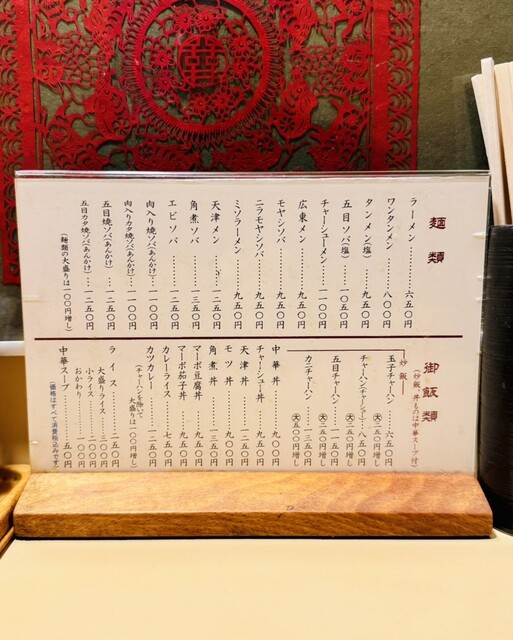 囍
麺類
ラーメン………六五〇円
ワンタンメン………八〇〇円
タンメン(塩)………九五〇円
五目ソバ(塩)………一〇五〇円
チャーシューメン………一一〇〇円
広東メン………九五〇円
モヤシソバ………九五〇円
ニラモヤシソバ………九五〇円
ミソラーメン………九五〇円
天津メン………一二五〇円
角煮ソバ………一三五〇円
エビソバ………一二五〇円
肉入り焼ソバ(あんかけ)………一一〇〇円
肉入りカタ焼ソバ(あんかけ)…一一〇〇円
五目焼ソバ(あんかけ)………一二五〇円
五目カタ焼ソバ(あんかけ)…一二五〇円
(麺類の大盛りは一〇〇円増し)
御飯類
(炒飯、丼ものは中華スープ付)
炒飯
玉子チャーハン………六五〇円
大二五〇円増し
チャーハン(チャーシュー)………八五〇円
大二五〇円増し
五目チャーハン………一一〇〇円
大三五〇円増し
カニチャーハン………一三五〇円
大五〇〇円増し
中華丼………九〇〇円
チャーシュー丼………九五〇円
天津丼………一二五〇円
モツ丼………九〇〇円
角煮丼………一三五〇円
マーボ豆腐丼………九五〇円
マーボ茄子丼………九五〇円
カレーライス………七五〇円
カツカレー………一二五〇円
(チャーハンを除いて
大盛りは一〇〇円増し)
ライス………二五〇円
大盛りライス………三〇〇円
小ライス………二〇〇円
おかわり………一〇〇円
中華スープ………五〇円
(価格はすべて消費税込みです)